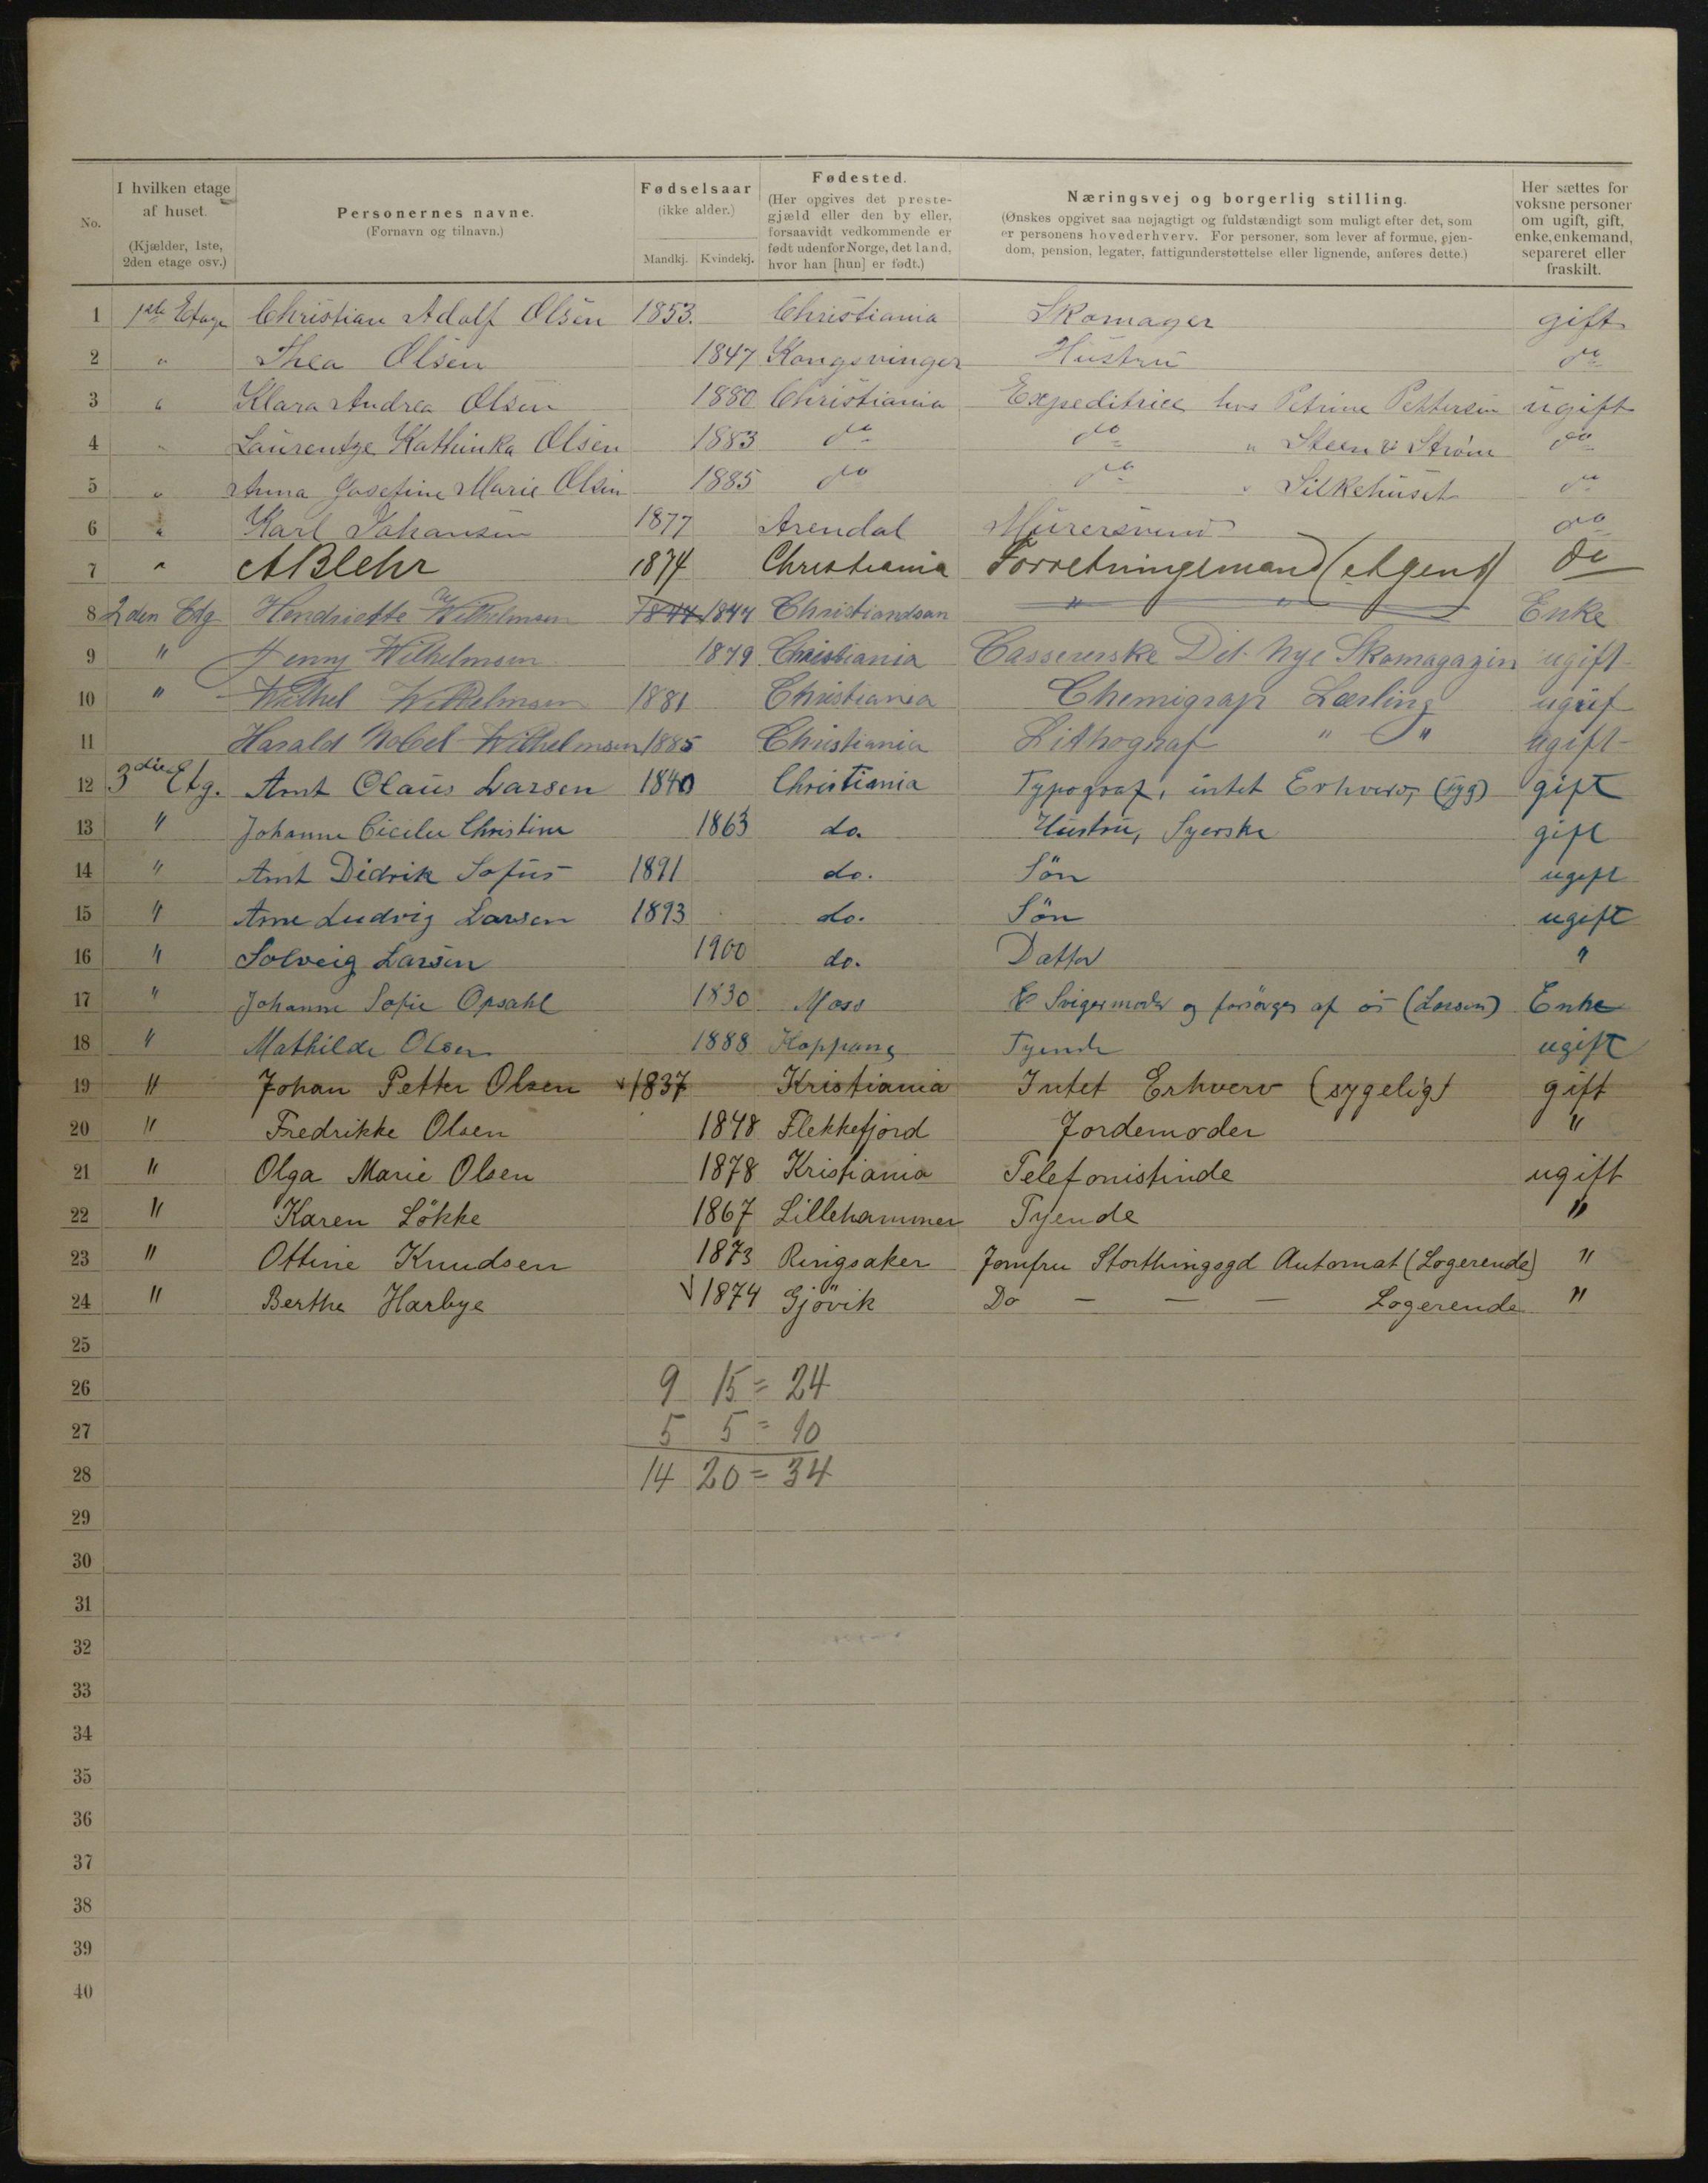 No.
I hvilken etage af huset. (Kjælder, 1ste, 2den etage osv.)
Personernes navne. (Fornavn og tilnavn.)
Fødselsaar (ikke alder.) Mandkj. Kvindekj.
Fødested. (Her opgives det prestegjæld eller den by eller, forsaavidt vedkommende er født udenfor Norge, det land, hvor han [hun] er født.)
Næringsvej og borgerlig stilling. (Ønskes opgivet saa nøjagtigt og fuldstændigt som muligt efter det, som er personens hovederhverv. For personer, som lever af formue, ejendom, pension, legater, fattigunderstøttelse eller lignende, anføres dette.)
Her sættes for voksne personer om ugift, gift, enke, enkemand, separeret eller fraskilt.
1 1ste Etage Christian Adolf Olsen 1853. Christiania Skomager gift
2 " Thea Olsen 1847 Kongsvinger Hustru do
3 " Klara Andrea Olsen 1880 Christiania Expeditrice hos Petrine Pettersen ugift
4 " Laurentze Kathinka Olsen 1883 do do " Steen & Strøm do
5 " Anna Josefine Marie Olsen 1885 do do " Silkehuset do
6 " Karl Johansen 1877 Arendal Murersvend do
7 " A Blehr 1874 Christiania Forretningsmand (Agent) do
8 2den Etg Hendriette Wilhelmsen 1844 1844 Christiandsan " " Enke
9 " Jenny Wilhelmsen 1879 Christiania Cassererske Det Nye Skomagazin ugift
10 " Wilhel Wilhelmsen 1881 Christiania Chemigrap Lærling ugif
11 Harald Nobel Wilhelmsen 1885 Christiania Lithograf " " ugift
12 3die Etg. Arnt Olaus Larsen 1840 Christiania Typograf, intet Erhverv, (syg) gift
13 " Johanne Cicilie Christine 1863 do. Hustru, Syerske gift
14 " Arnt Didrik Sofus 1891 do. Søn ugift
15 " Arne Ludvig Larsen 1893 do. Søn ugift
16 " Solveig Larsen 1900 do. Datter "
17 " Johanne Sofie Opsahl 1830 Moss Svigermoder og forsørges af os (Larsen) Enke
18 " Mathilde Olsen 1888 Koppang Tyende ugift
19 " Johan Petter Olsen 1837 Kristiania Intet Erhverv (sygelig) gift
20 " Fredrikke Olsen 1848 Flekkefjord Jordemoder "
21 " Olga Marie Olsen 1878 Kristiania Telefonistinde ugift
22 " Karen Lökke 1867 Lillehammer Tyende "
23 " Ottine Knudsen 1873 Ringsaker Jomfru Storthingsgd Automat (Logerende) "
24 " Berthe Harbye 1874 Gjövik Do — — — Logerende "
25
26 9 15 = 24
27 5 5 = 10
28 14 20 = 34
29
30
31
32
33
34
35
36
37
38
39
40